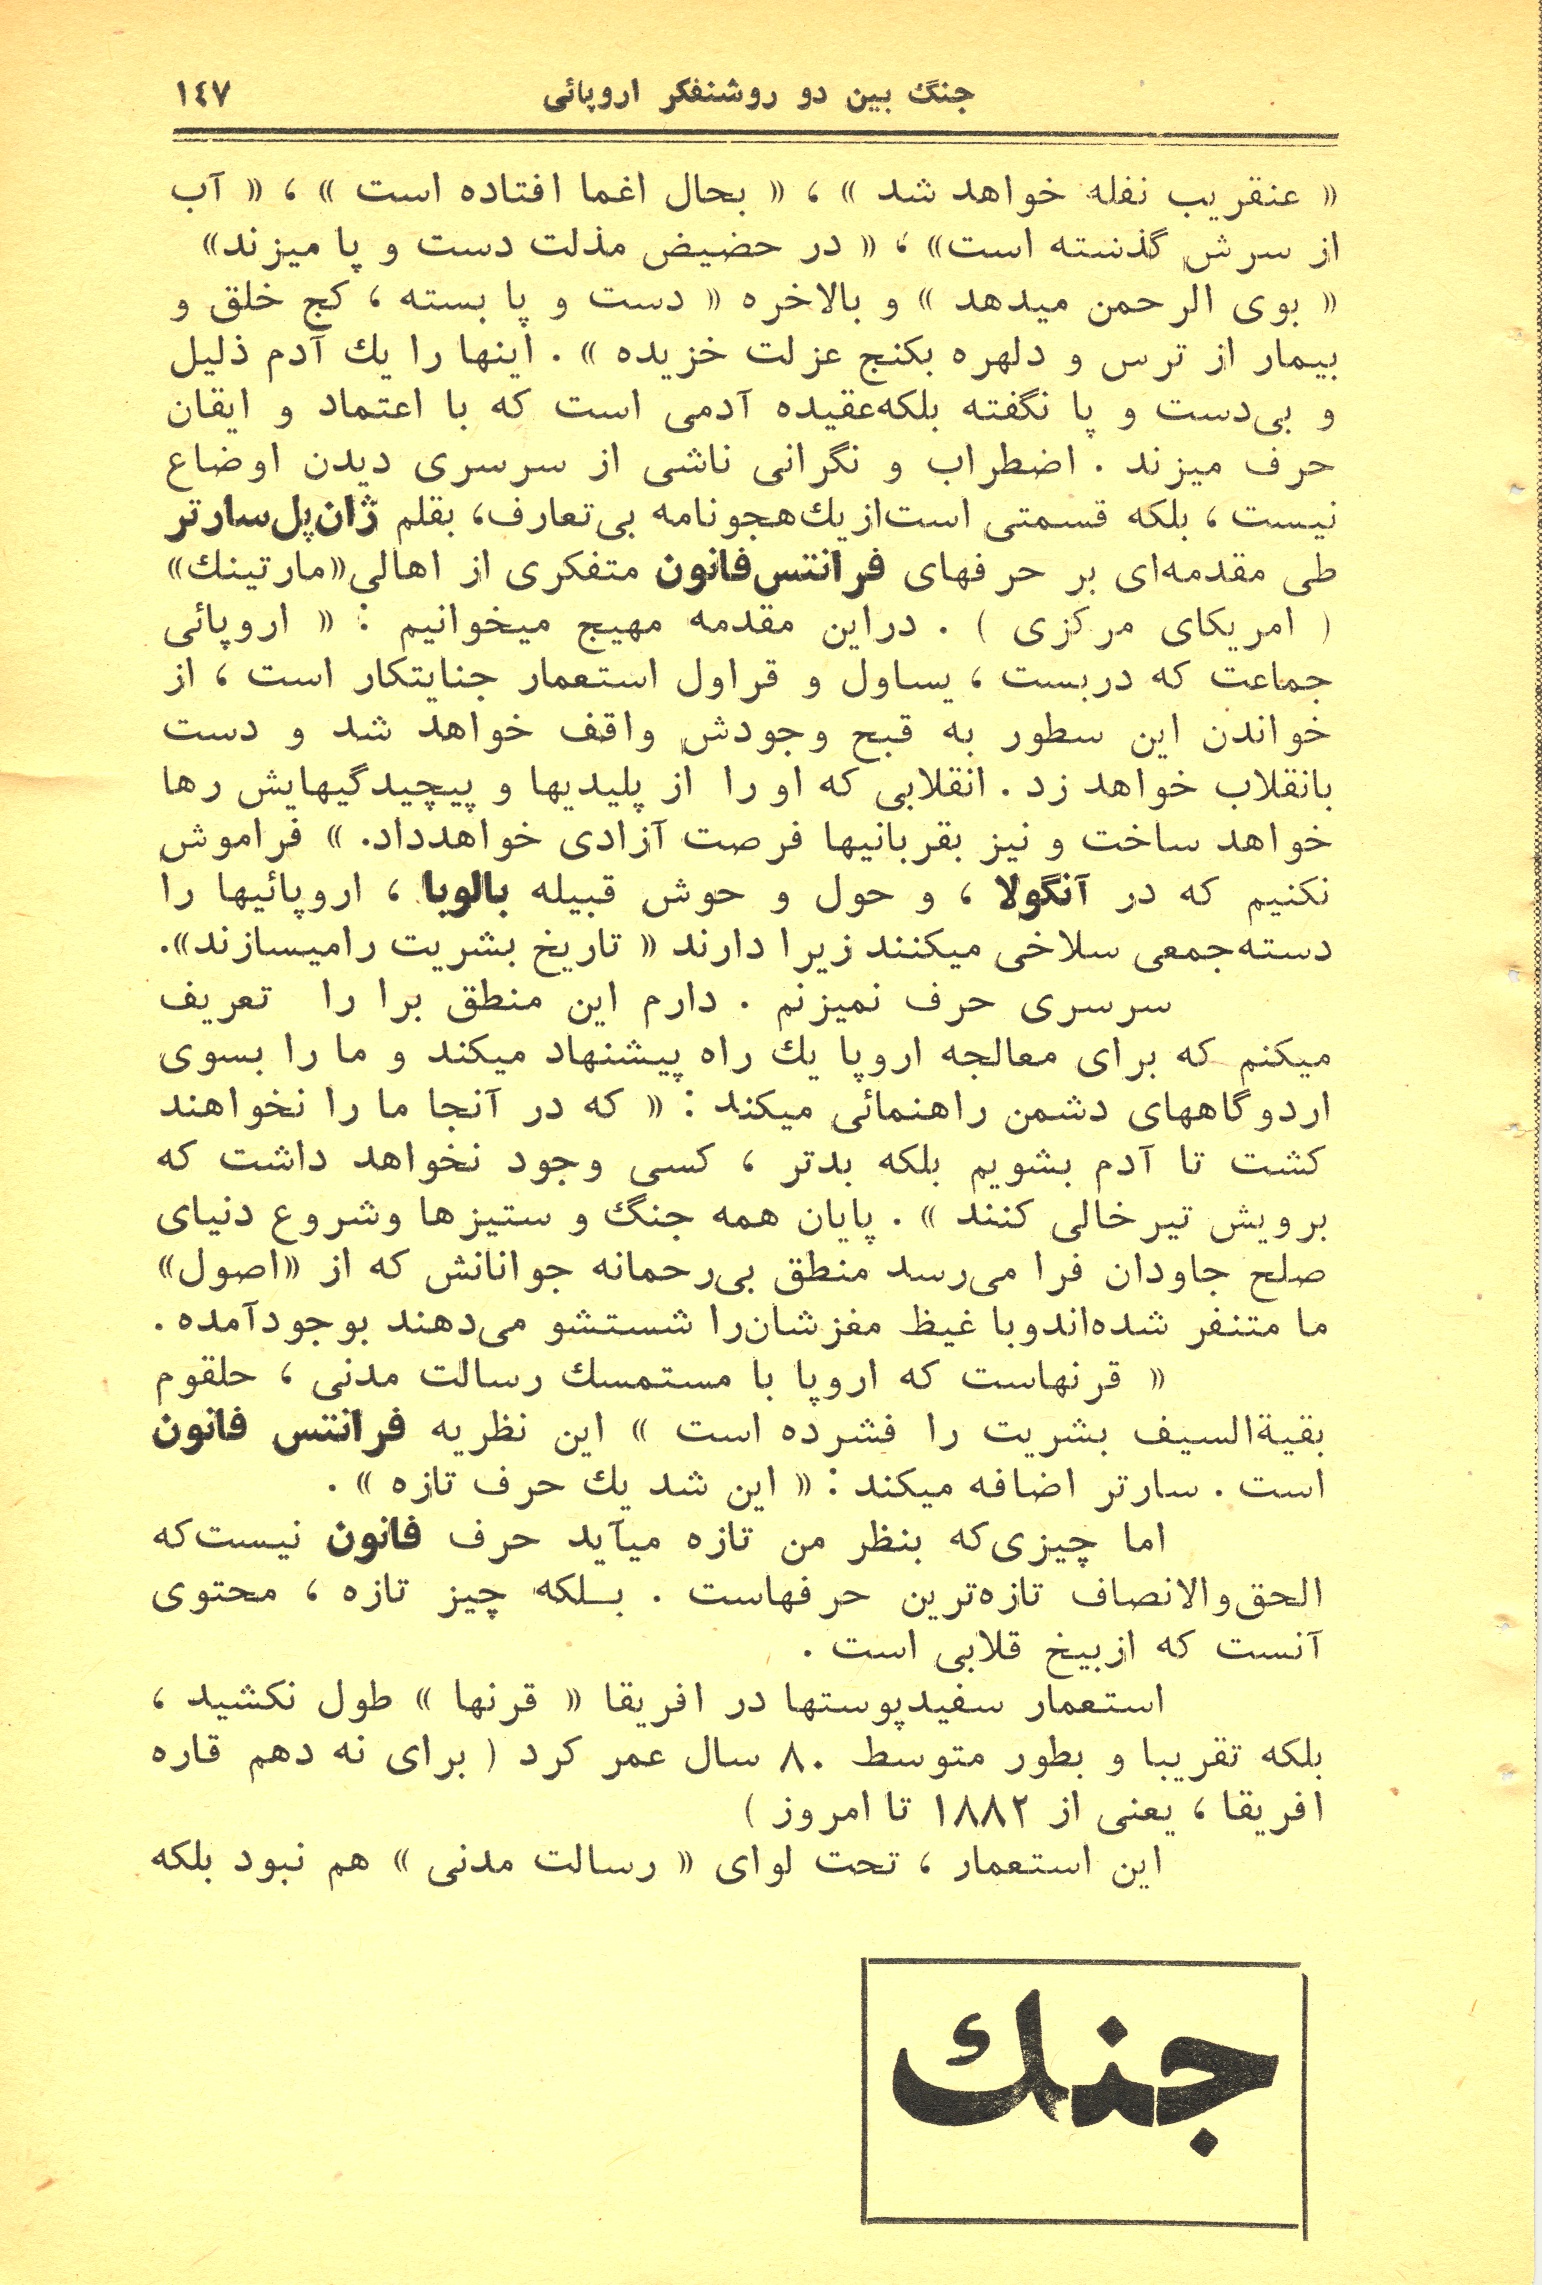 جنگ بین دو روشنفکر اروپائی ١٤٧
« عنقریب نفله خواهد شد » ، « بحال اغما افتاده است » ، « آب
از سرش گذشته است» ، « در حضیض مذلت دست و پا میزند»
« بوی الرحمن میدهد » و بالاخره « دست و پا بسته ، کج خلق و
بیمار از ترس و دلهره بکنج عزلت خزیده » . اینها را یك آدم ذلیل
و بی‌دست و پا نگفته بلکه‌عقیده آدمی است که با اعتماد و ایقان
حرف میزند . اضطراب و نگرانی ناشی از سرسری دیدن اوضاع
نیست ، بلکه قسمتی است‌ازیك‌هجونامه بی‌تعارف، بقلم ژان‌پل‌سارتر
طی مقدمه‌ای بر حرفهای فرانتس‌فانون متفکری از اهالی«مارتینك»
( امریکای مرکزی ) . دراین مقدمه مهیج میخوانیم : « اروپائی
جماعت که دربست ، یساول و قراول استعمار جنایتکار است ، از
خواندن این سطور به قبح وجودش واقف خواهد شد و دست
بانقلاب خواهد زد . انقلابی که او را از پلیدیها و پیچیدگیهایش رها
خواهد ساخت و نیز بقربانیها فرصت آزادی خواهدداد. » فراموش
نکنیم که در آنگولا ، و حول و حوش قبیله بالوبا ، اروپائیها را
دسته‌جمعی سلاخی میکنند زیرا دارند « تاریخ بشریت رامیسازند».
سرسری حرف نمیزنم . دارم این منطق برا را تعریف
میکنم که برای معالجه اروپا یك راه پیشنهاد میکند و ما را بسوی
اردوگاههای دشمن راهنمائی میکند : « که در آنجا ما را نخواهند
کشت تا آدم بشویم بلکه بدتر ، کسی وجود نخواهد داشت که
برویش تیرخالی کنند » . پایان همه جنگ و ستیزها وشروع دنیای
صلح جاودان فرا می‌رسد منطق بی‌رحمانه جوانانش که از «اصول»
ما متنفر شده‌اندوبا غیظ مغزشان‌را شستشو می‌دهند بوجودآمده .
« قرنهاست که اروپا با مستمسك رسالت مدنی ، حلقوم
بقیةالسیف بشریت را فشرده است » این نظریه فرانتس فانون
است . سارتر اضافه میکند : « این شد یك حرف تازه » .
اما چیزی‌که بنظر من تازه میآید حرف فانون نیست‌که
الحق‌والانصاف تازه‌ترین حرفهاست . بـلکه چیز تازه ، محتوی
آنست که ازبیخ قلابی است .
استعمار سفیدپوستها در افریقا « قرنها » طول نکشید ،
بلکه تقریبا و بطور متوسط ٨٠ سال عمر کرد ( برای نه دهم قاره
افریقا ، یعنی از ١٨٨٢ تا امروز )
این استعمار ، تحت لوای « رسالت مدنی » هم نبود بلکه
جنك